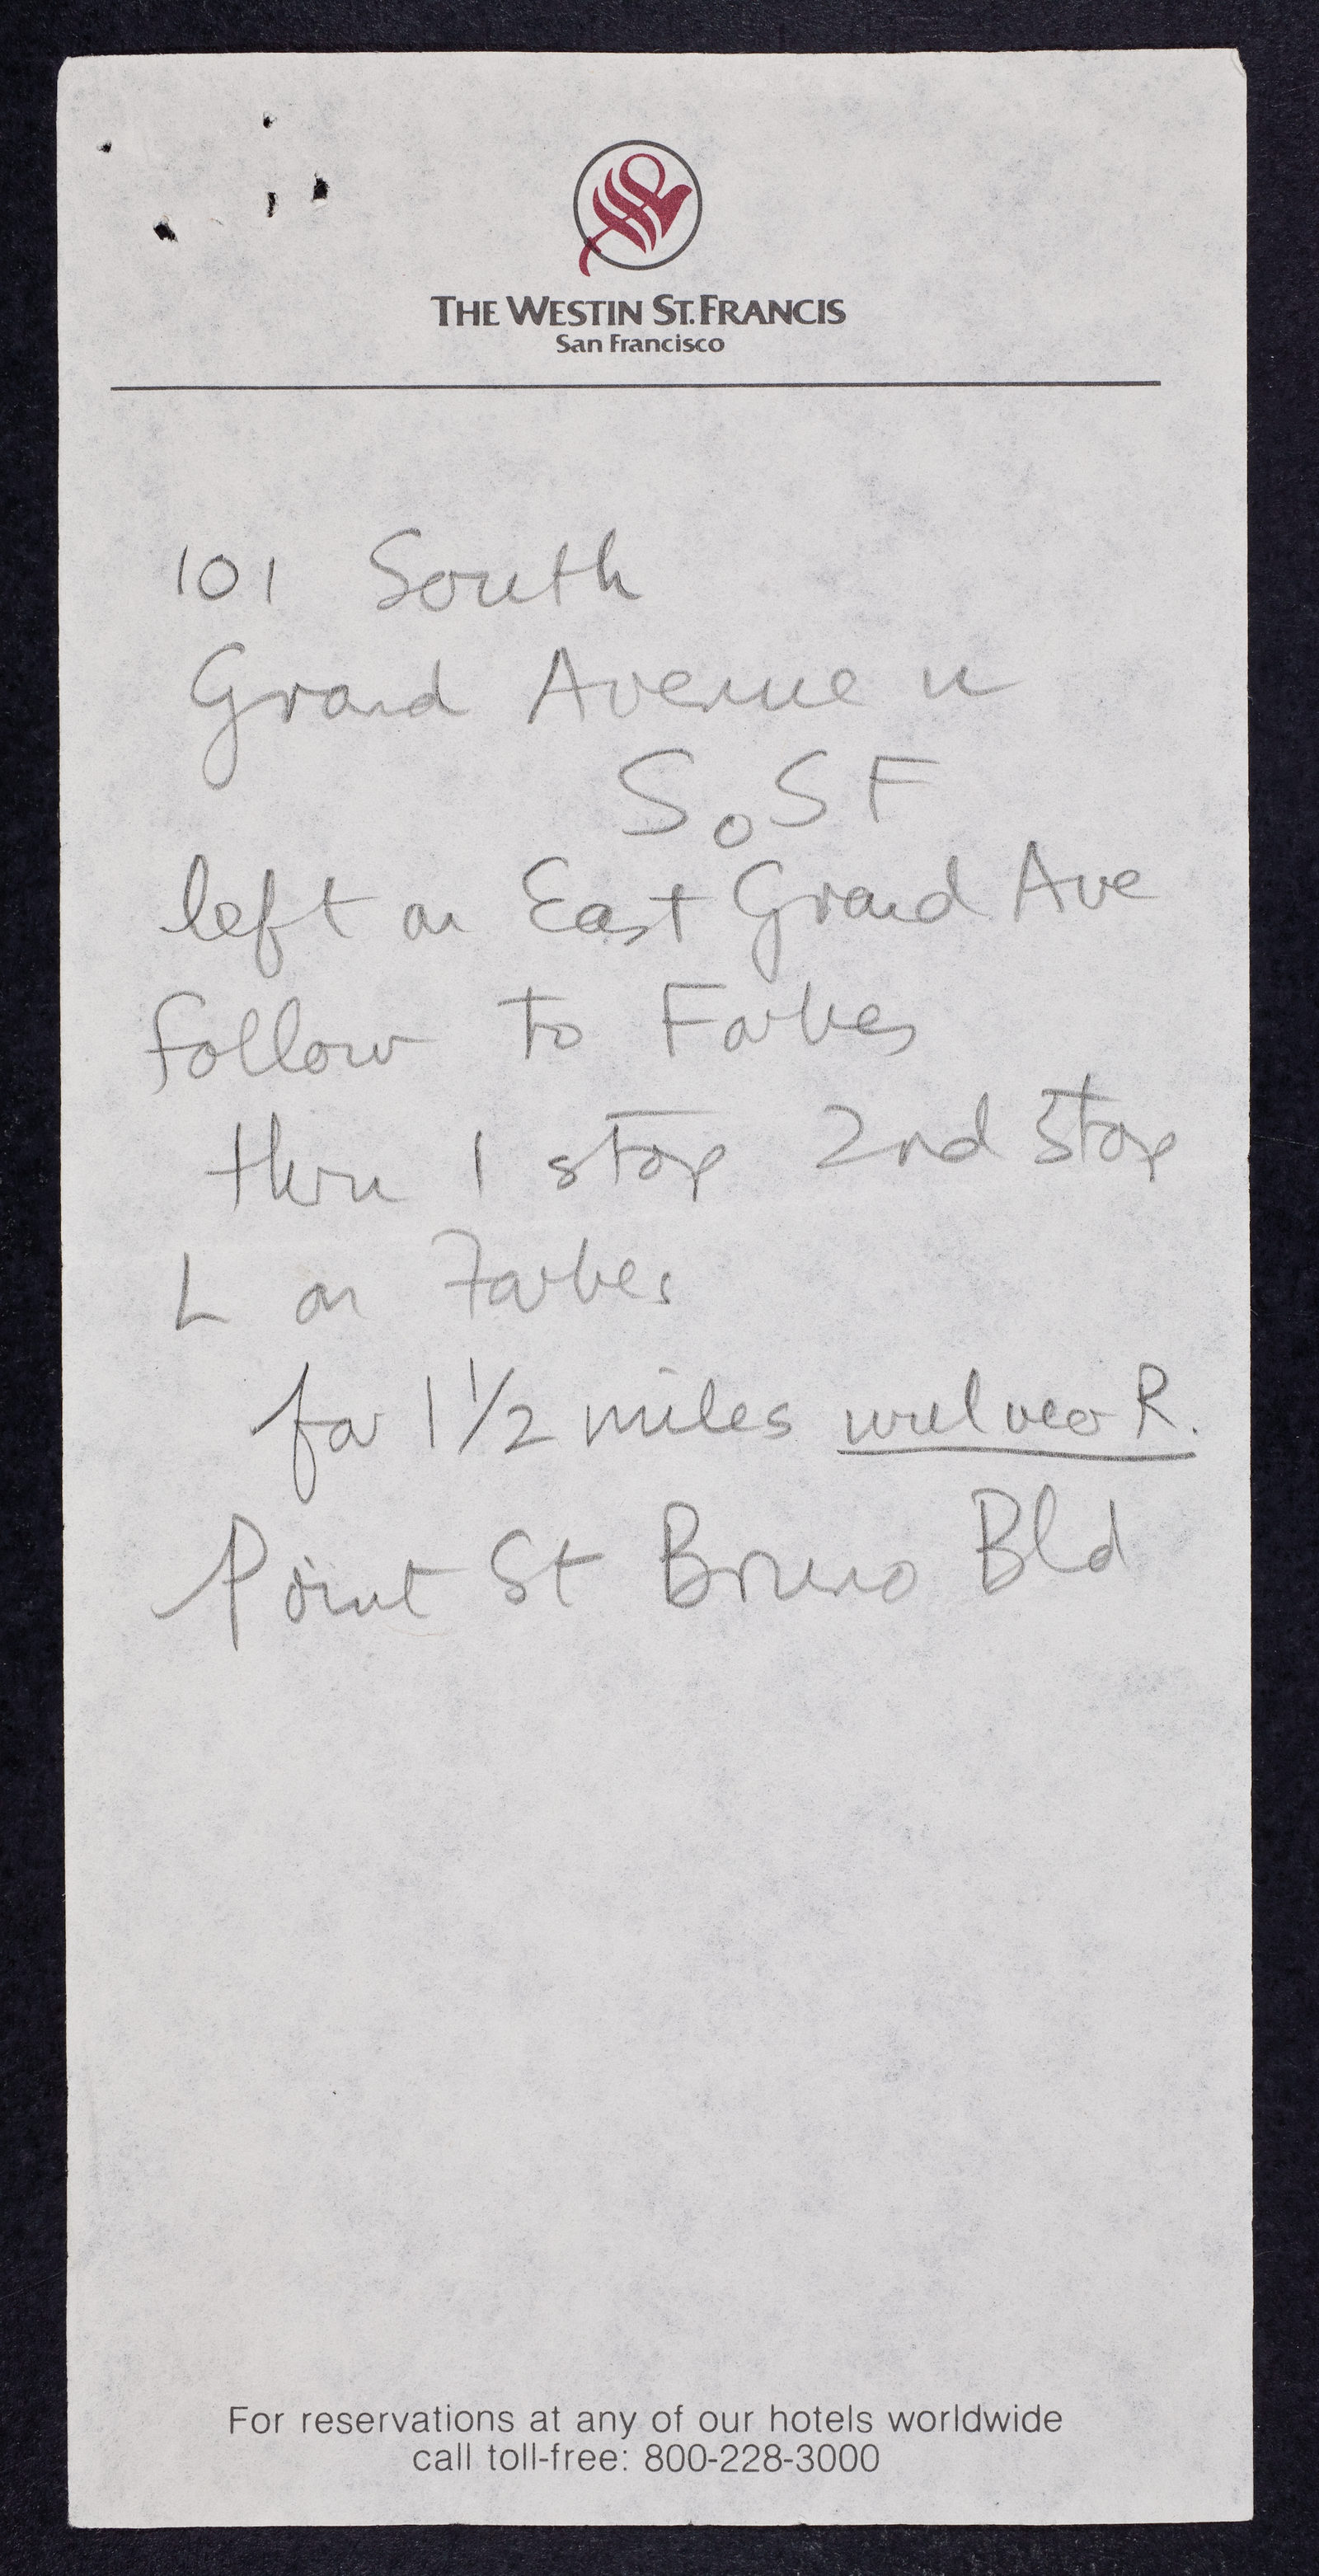 THE WESTIN ST. FRANCIS
San Francisco
101 South
Grand Avenue in
So SF
left on East Grand Ave
follow to Forbes
thru 1 stop 2nd stop
L on Forbes
for 1 1/2 miles will veer R.
Point St Bruno Bld
For reservations at any of our hotels worldwide
call toll-free: 800-228-3000